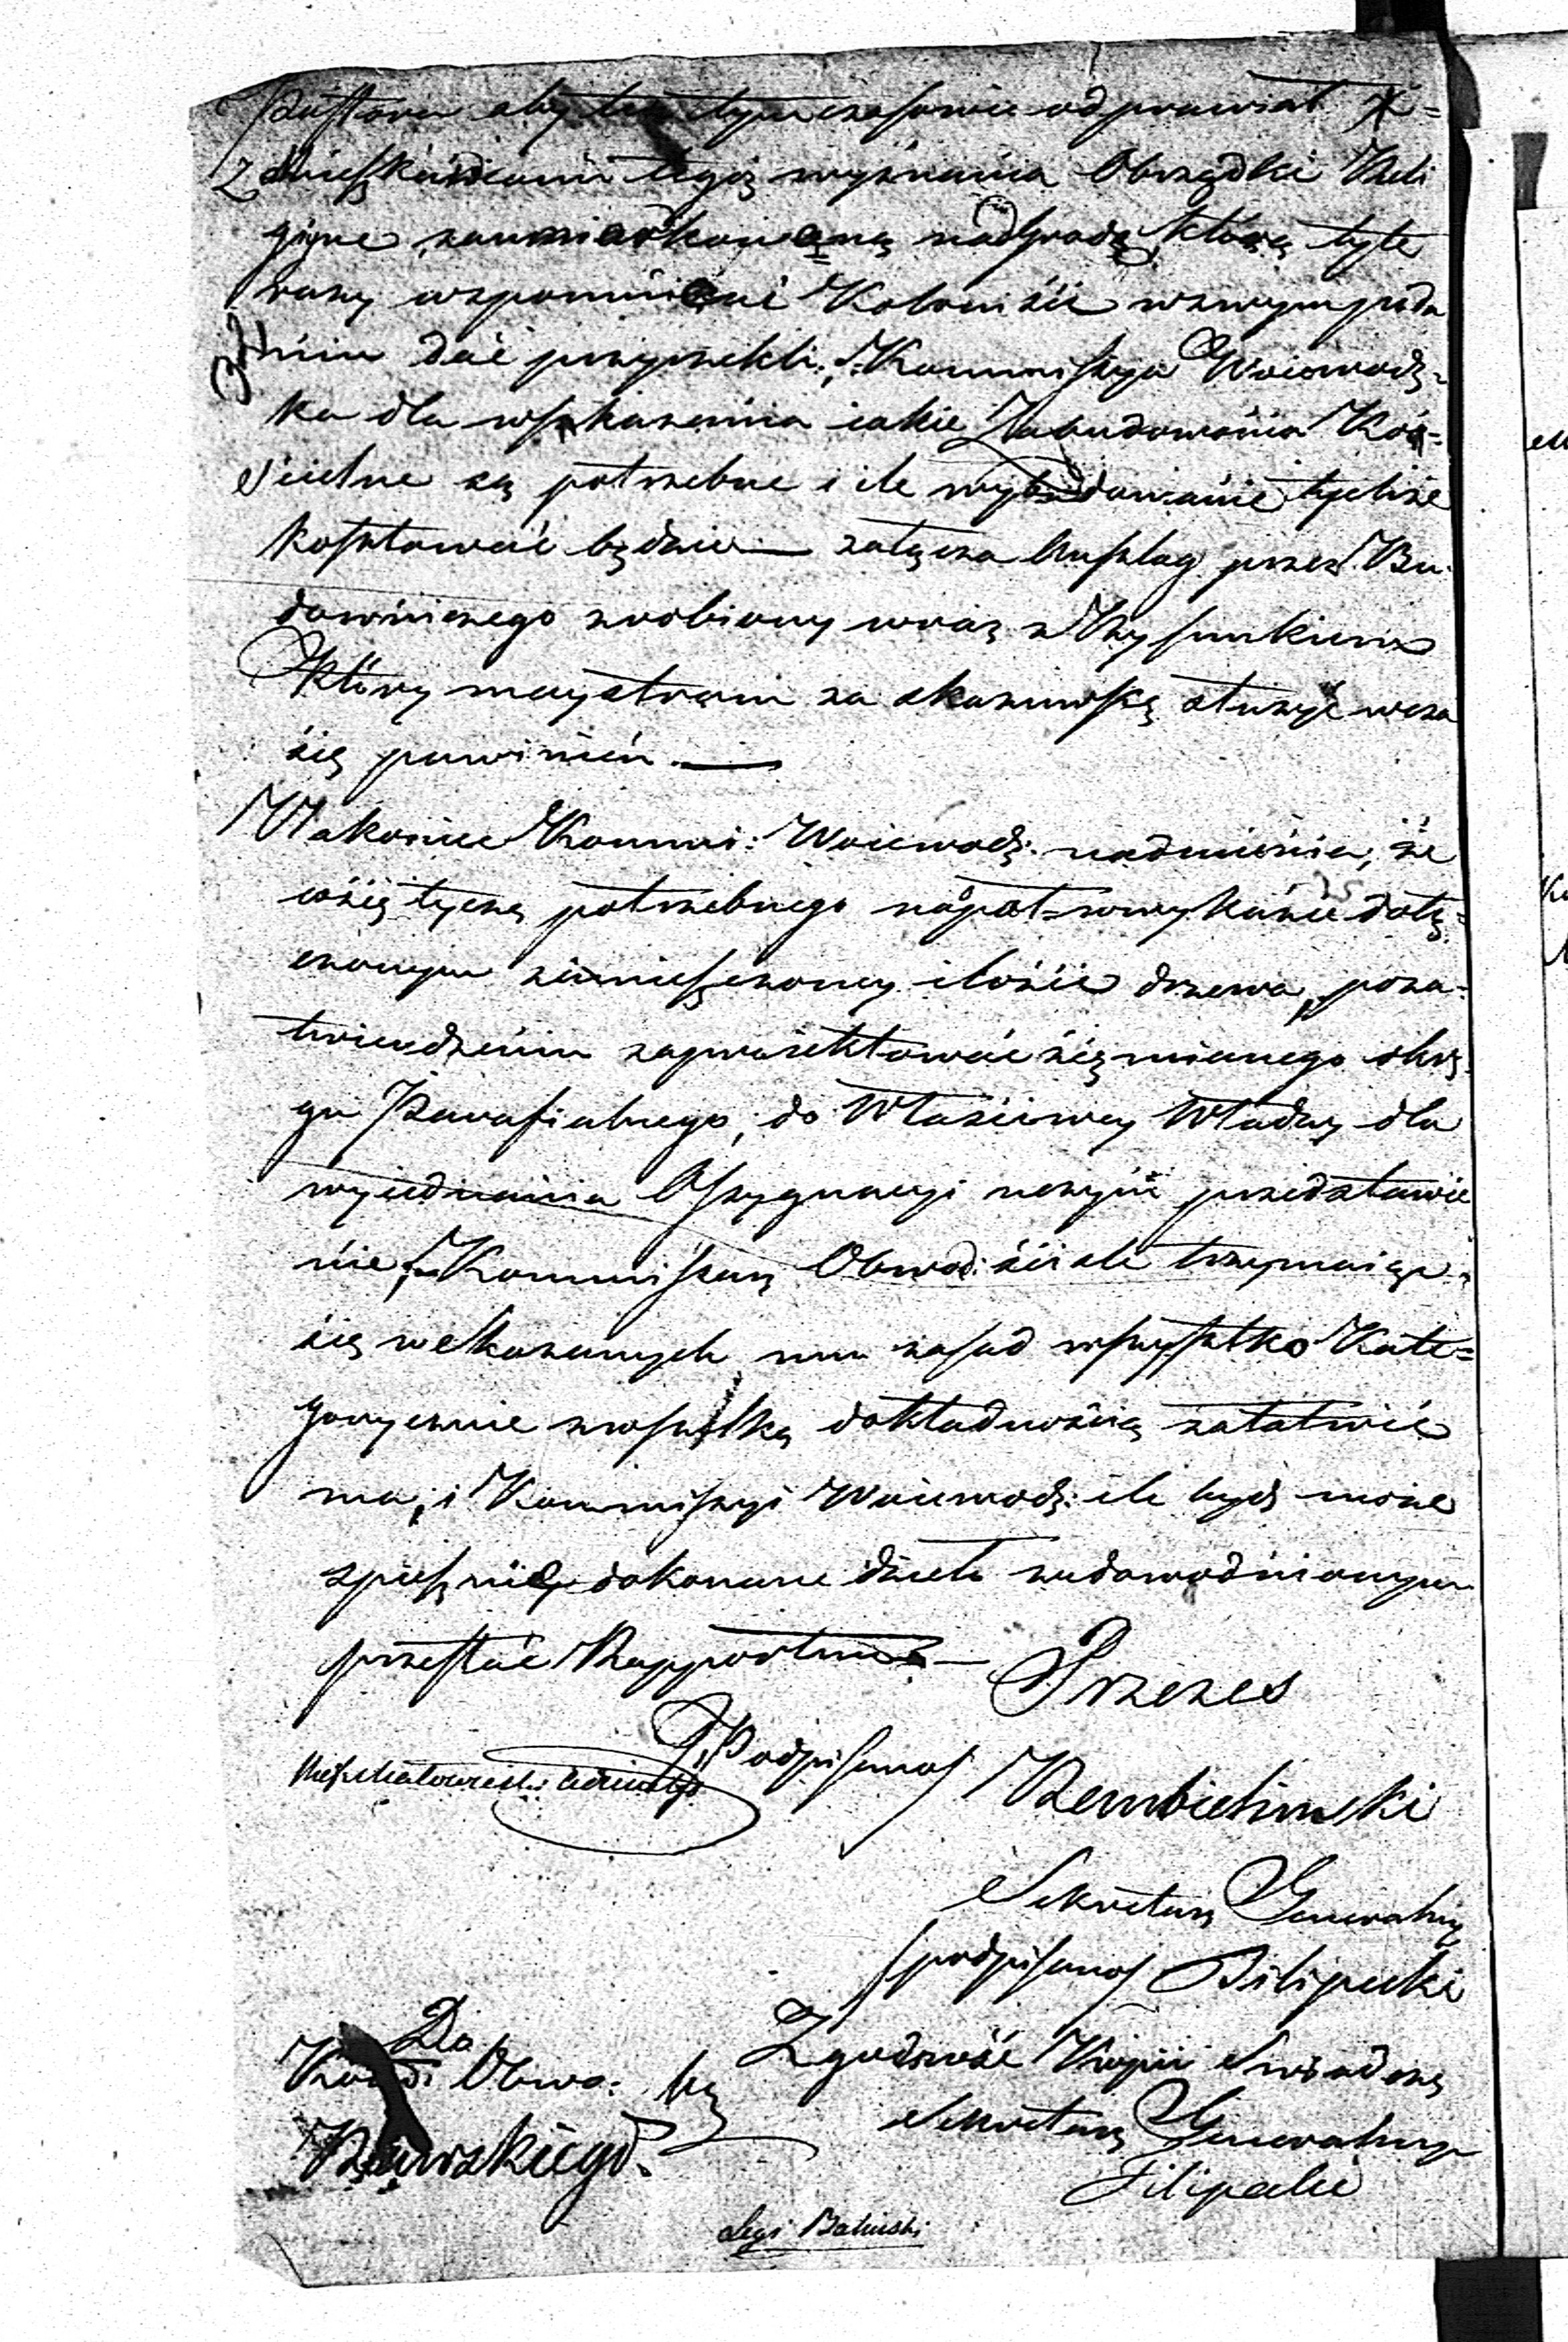 Pastora aby ten tymczasowie odprawiał
z mieszkańcami tegoż wyznania Obrządki Reli
gijne zaumiarkowaną nadgrodą którą tyle
razy wspomnieni Koloniści wswym poda
niu dać przyrzekli; Kommissya Woiewodz=
ka dla wskazania iakie Zabudowania Koś=
cielne są potrzebne i ile wybudowanie tychże
kosztować będzie — załącza Anszlag przez Bu
downiczego zrobiony wraz z Rysunkiem
który maystrom za skazuwkę służyć wcza
się powinien. —
Nakoniec Kommi: Woiewodz: nadmienia, że
cosię tycze potrzebnego wykazie dołą=
czonym zamieszczoney ilości drzewa, poza=
twierdzeniu zaproiektować się mianego okrę
gu Parafialnego, do Właściwey Władzy dla
wyiednania Assygnacyi uczyni przedstawie
nie; Kommissarz Obwod: ściśle trzymaiąc
się wskazanych mu zasad wszystko Kate=
gorycznie zwszelką dokładnością załatwić
ma, i Kommissyi Woiewodz: ile bydź może
śpieszniey dokonane dzieło zudowodnionym
przesłać Rapportem —
Prezes
/Podpisano/ Rembieliński
Sekretarz Generalny
/podpisano/ Filipecki
Zgodność Kopii Świadczy
Sekretarz Generalny
Filipecki
Do
Komi: Obwo:
Rawskiego.